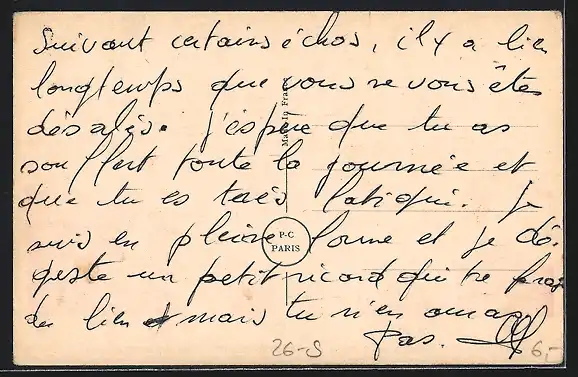 Suivant certains échos, il y a bien
longtemps que vous ne vous êtes
désalés. j'espère que tu as
souffert toute la journée et
que tu es très fatigué. Je
suis en pleine forme et je dé-
guste un petit ricard qui te
du bien mais tu n'en auras
pas.
Made in France
P-C
PARIS
26-S
6,-